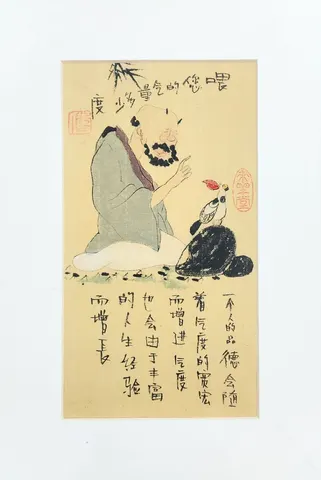 喂您的气量多少度
一个人的品德会随
着气度的宽宏
而增进气度
也会由于丰富
的人生经验
而增长